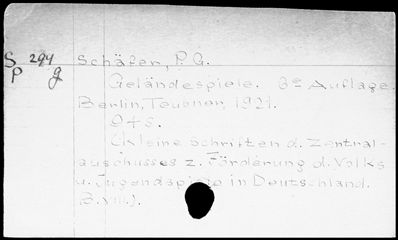 S 294 Schäfer, P. G.
P g Geländespiele. 3e Auflage.
Berlin, Teubner, 1921.
S.
(Kleine Schriften d. Zentral-
auschusses z. Förderung d. Volks
u. Jugendspiele in Deutschland.
(B. VIII).